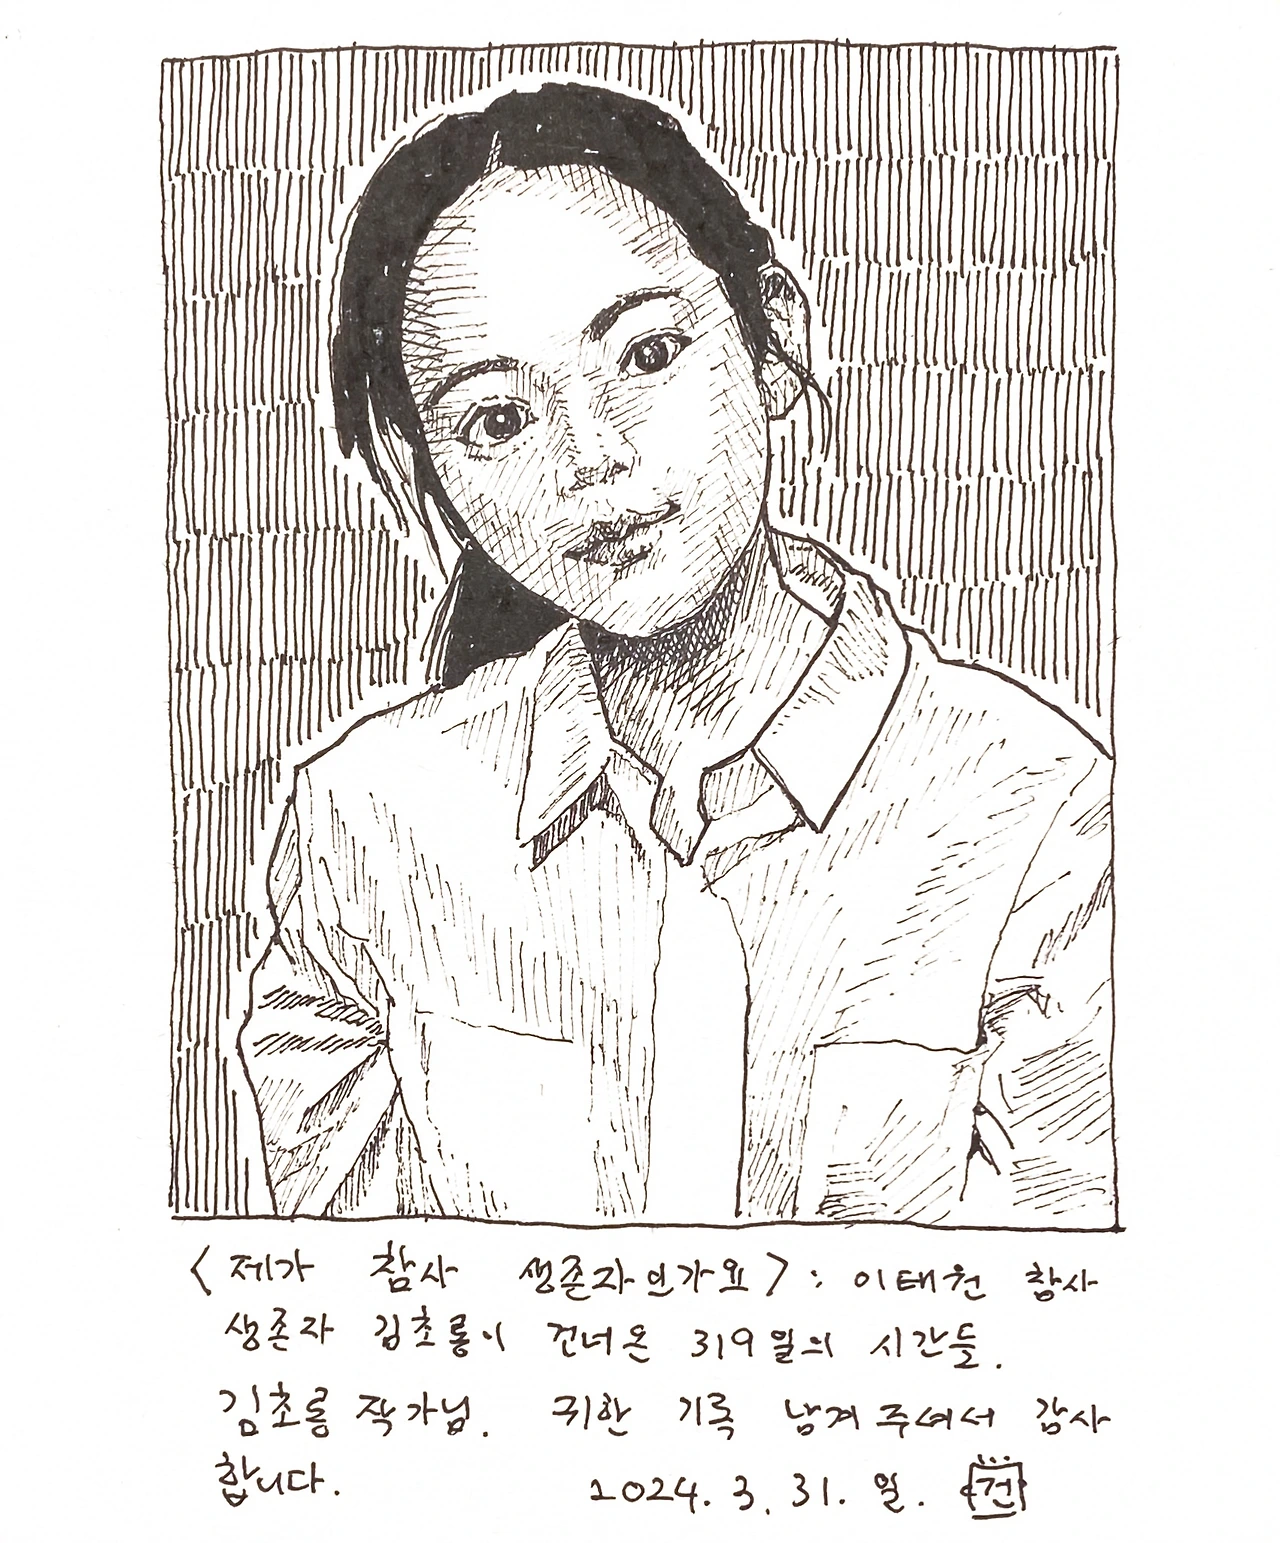 <제가 참사 생존자인가요> : 이태원 참사
생존자 김초롱이 건너온 319일의 시간들.
김초롱 작가님. 귀한 기록 남겨 주셔서 감사
합니다. 2024. 3. 31. 일. 건